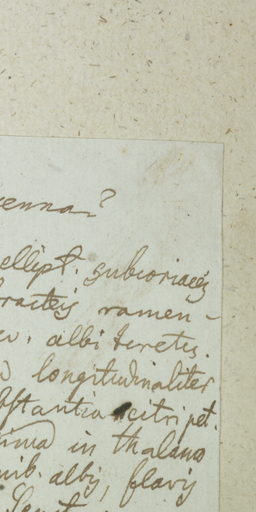 ellipt. subcoriaceis
racteis ramen-
albi teretes.
longitudinaliter
stantia citri pet.
in thalamo
nib. albis, flavis